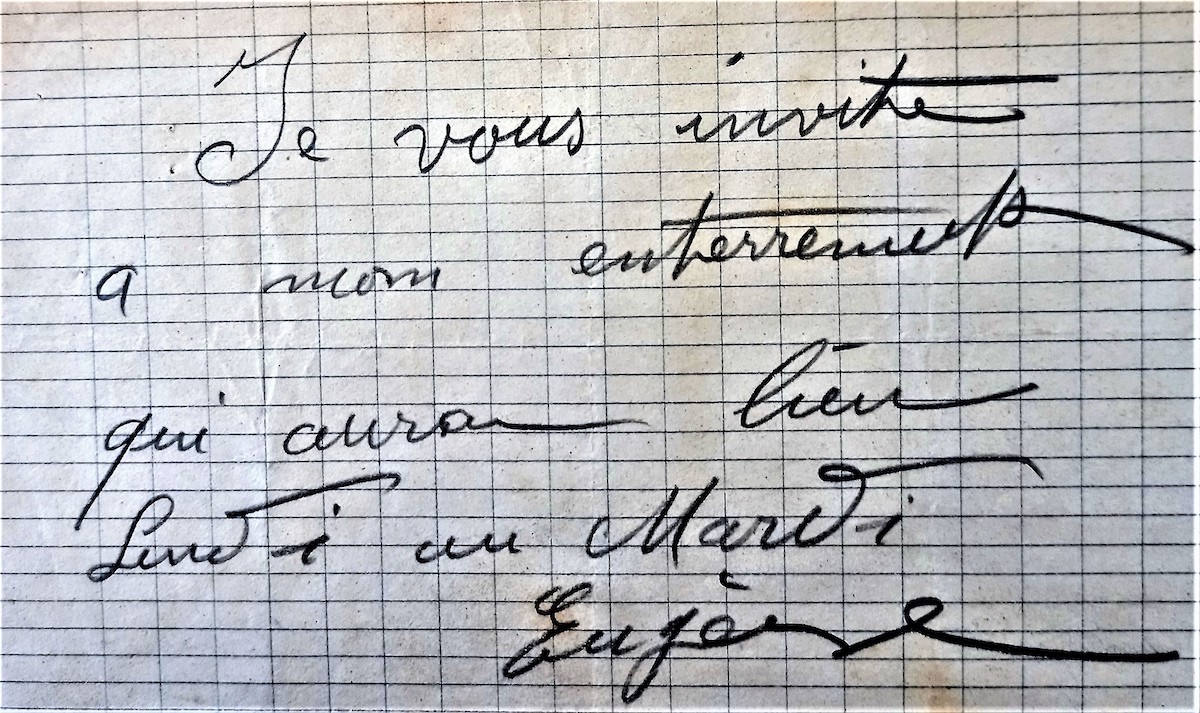 Je vous invite
a mon enterrement
qui aura lieu
Lundi ou Mardi
Eugène